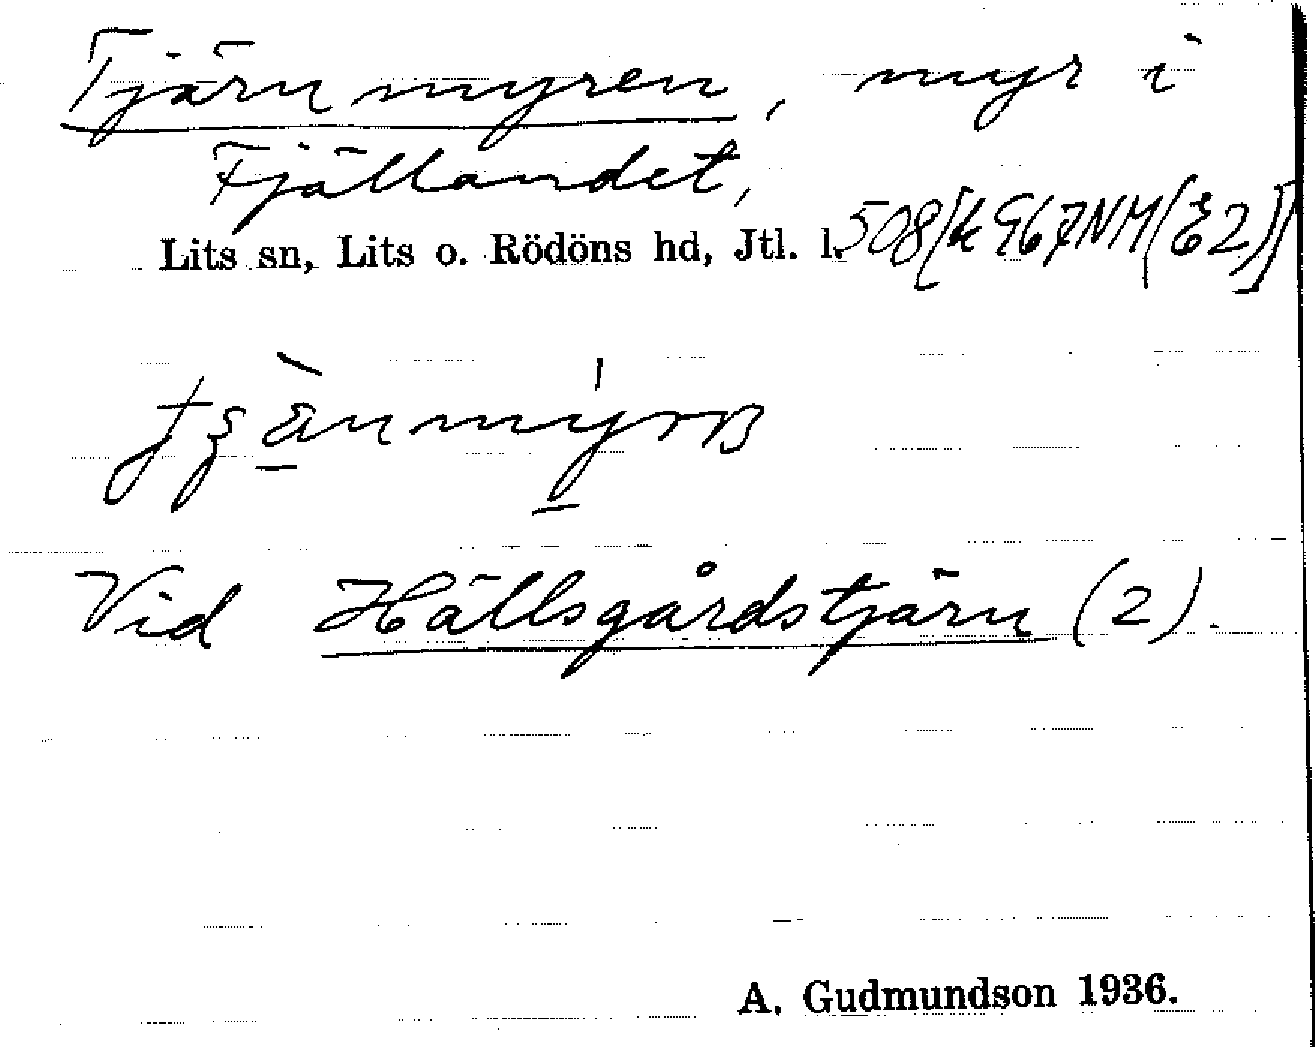 Tjärnmyren, myr i
Fjällandet,
Lits sn, Lits o. Rödöns hd, Jtl. l.
Vid Hällsgårdstjärn (2).
A. Gudmundson 1936.